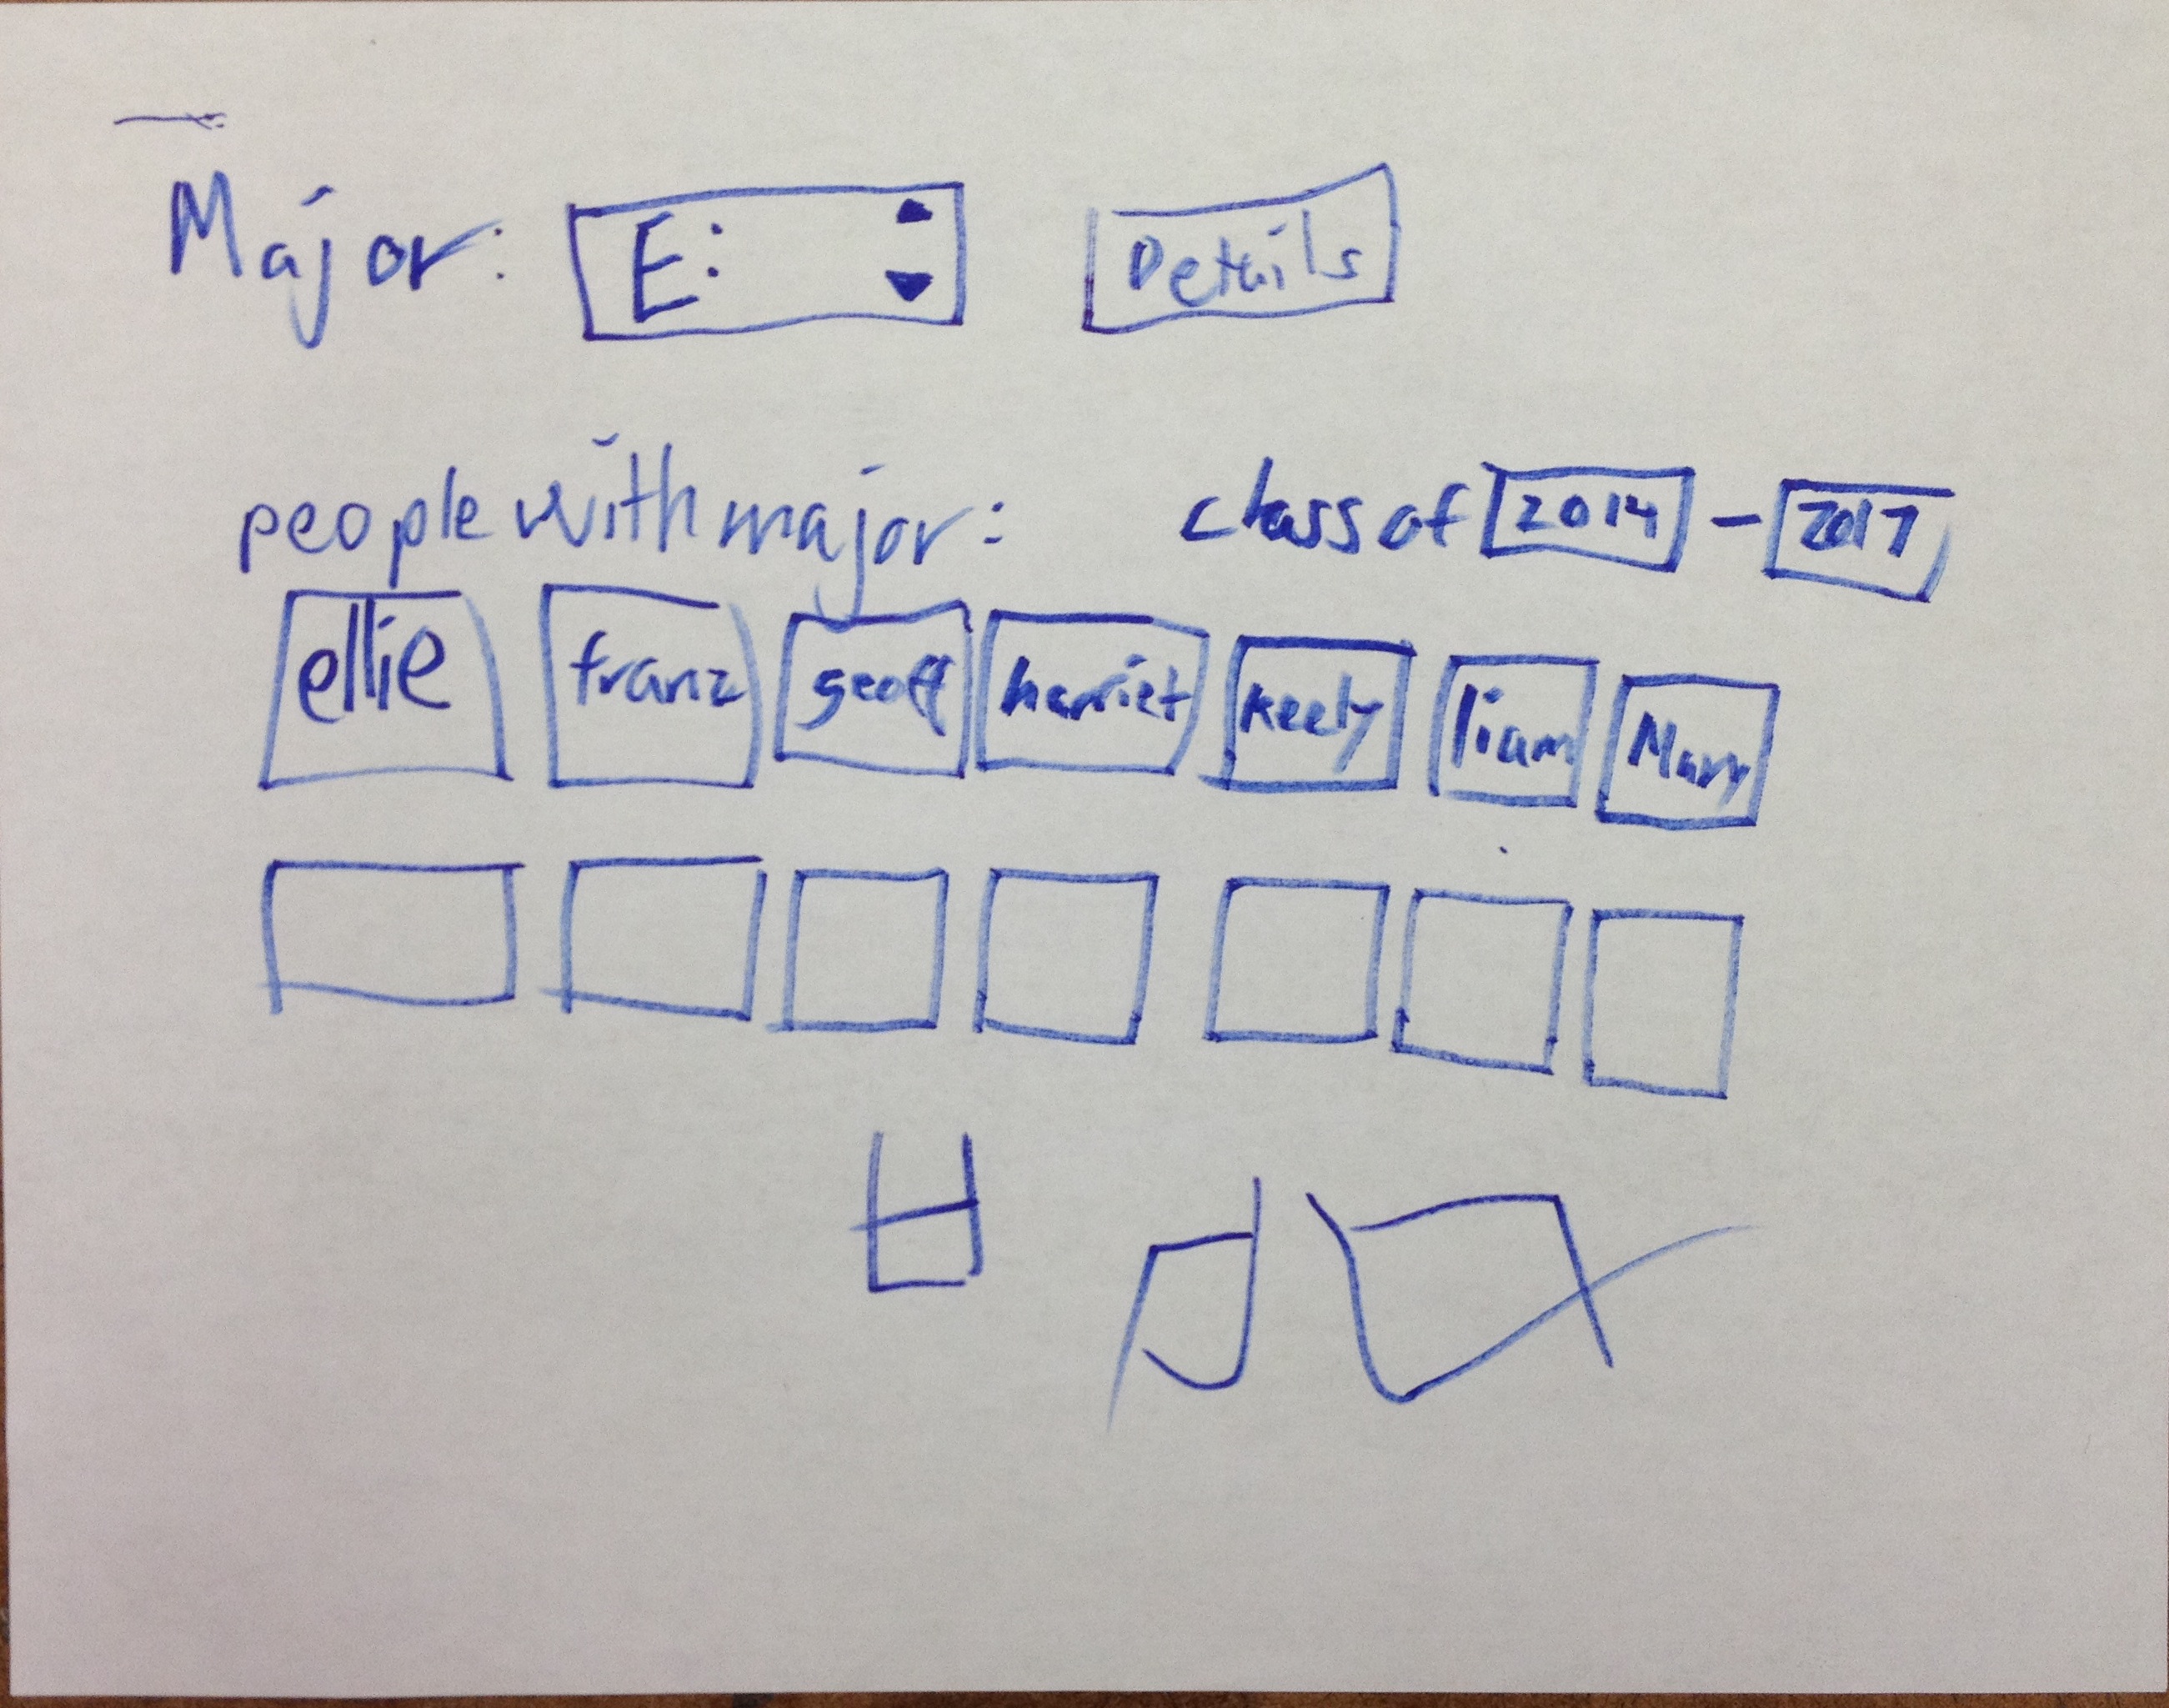 Major: E: Details
people with major: class of 2014 - 2017
ellie franz geoff harriet keely liam Mary